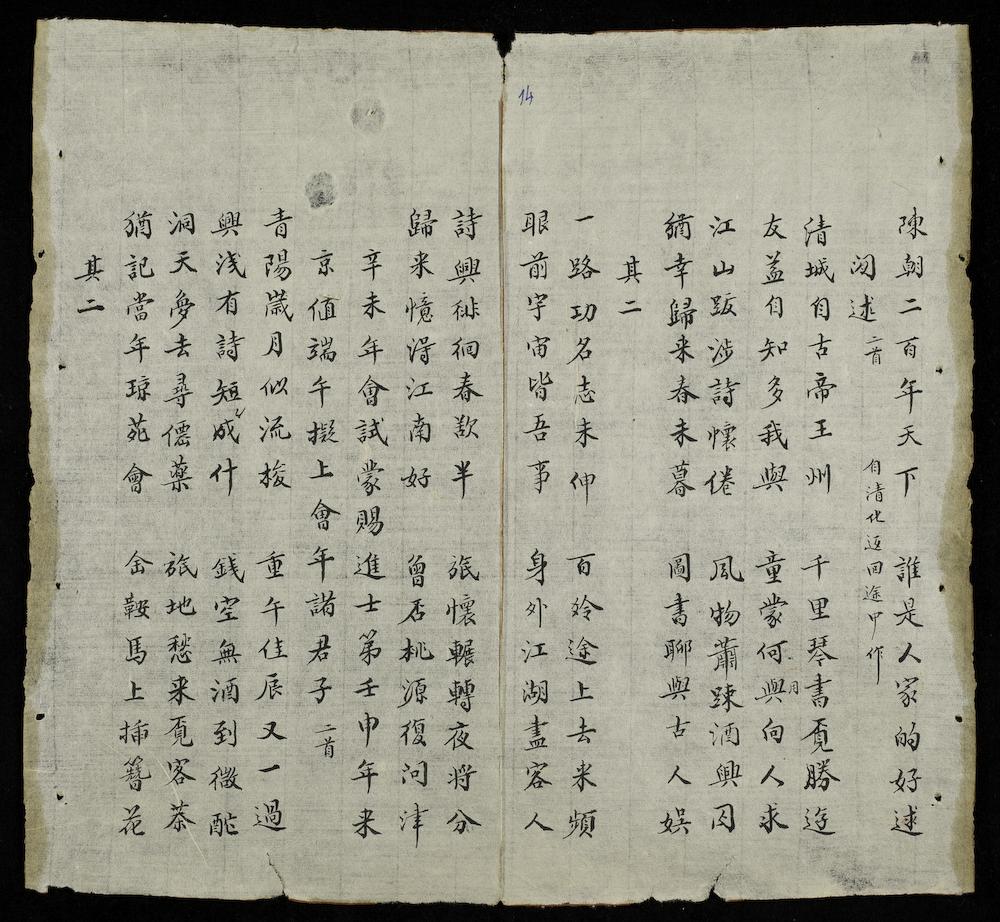 14
陳朝二百年天下 誰是人家的好逑
閔述 二首 自清化返回途中作
清城自古帝王州 千里琴書覓勝遊
友益自知多我與 童蒙何與向人求
月
江山跋涉詩懷倦 風物蕭踈酒興囚
猶幸歸来春未暮 圖書聊與古人娱
其二
一路功名志未伸 百舲途上去来頻
眼前宇宙皆吾事 身外江湖盡客人
詩興徘徊春欲半 旅懷輾轉夜将分
歸来憶得江南好 曾否桃源復问津
辛未年會試蒙賜進士第壬申年来
京値端午擬上會年諸君子 二首
青陽歲月似流梭 重午佳辰又一過
興浅有詩短成什 錢空無酒到微酡
洞天夢去尋僊藥 旅地愁来覓客茶
猶記當年琼苑會 金鞍馬上揷簪花
其二